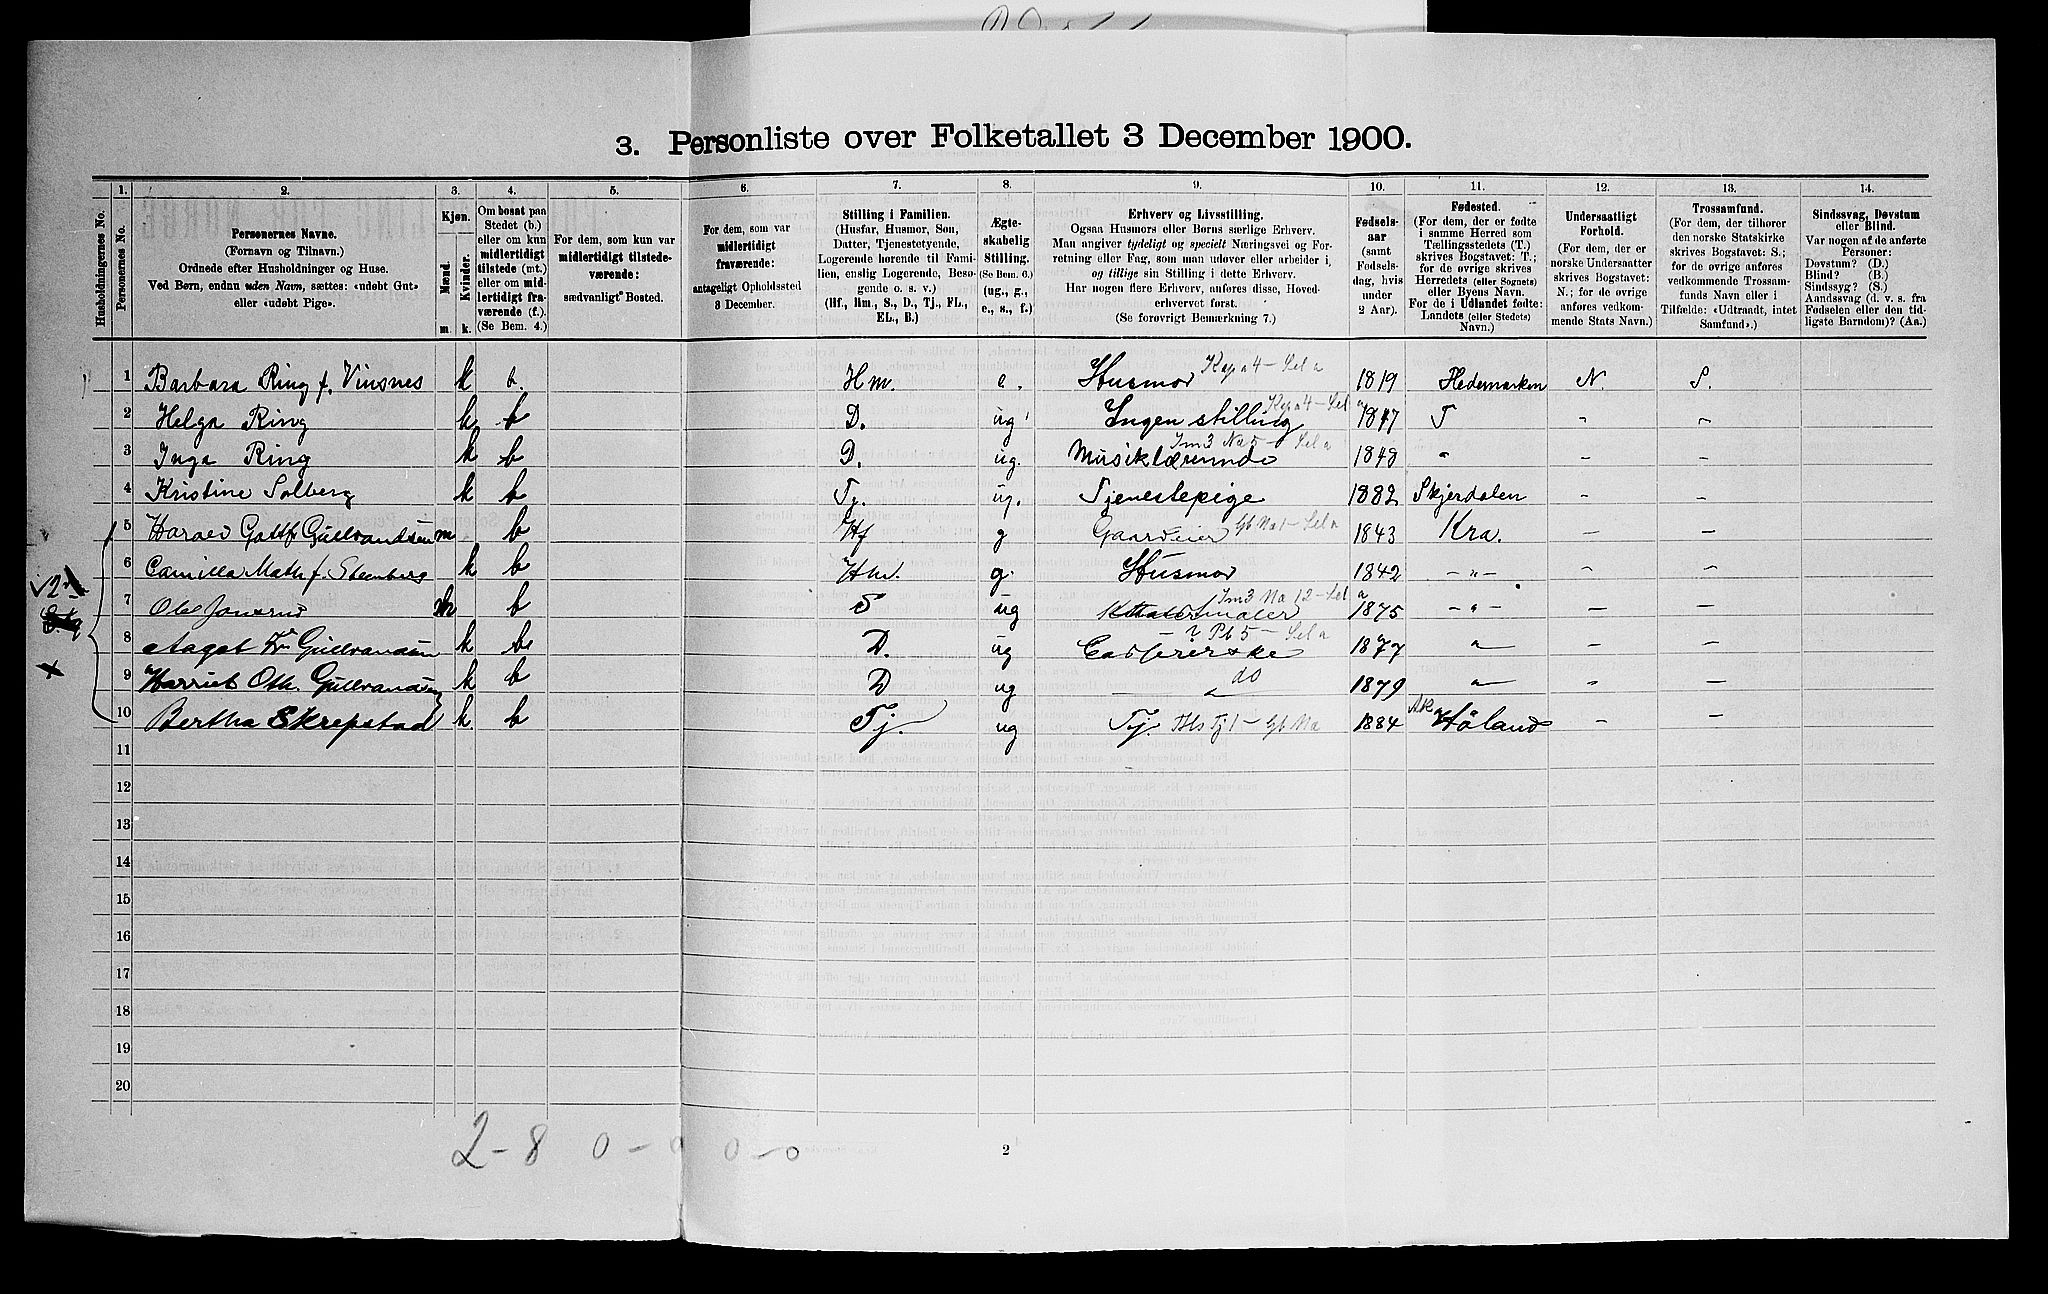 3. Personliste over Folketallet 3 December 1900.
1. 2. 3. 4. 5. 6. 7. 8. 9. 10. 11. 12. 13. 14.
Husholdningernes No.
Personernes No.
Personernes Navne.
(Fornavn og Tilnavn.)
Ordnede efter Husholdninger og Huse.
Ved Børn, endnu uden Navn, sættes: «udøbt Gut»
eller «udøbt Pige».
Kjøn.
Mænd.
Kvinder.
m. k.
Om bosat paa
Stedet (b.)
eller om kun
midlertidigt
tilstede (mt.)
eller om mid-
lertidigt fra-
værende (f.)
(Se Bem. 4.)
For dem, som kun var
midlertidigt tilstede-
værende:
sædvanligt Bosted.
For dem, som var
midlertidigt
fraværende:
antageligt Opholdssted
3 December.
Stilling i Familien.
(Husfar, Husmor, Søn,
Datter, Tjenestetyende,
Logerende hørende til Fami-
lien, enslig Logerende, Besø-
gende o. s. v.)
(Hf., Hm., S., D., Tj., FL.,
EL., B.)
Ægte-
skabelig
Stilling.
(Se Bem. 6.)
(ug., g.,
e., s., f.)
Erhverv og Livsstilling.
Ogsaa Husmors eller Børns særlige Erhverv.
Man angiver tydeligt og specielt Næringsvei og For-
retning eller Fag, som man udøver eller arbeider i,
og tillige sin Stilling i dette Erhverv.
Har nogen flere Erhverv, anføres disse, Hoved-
erhvervet først.
(Se forøvrigt Bemærkning 7.)
Fødsels-
aar
(samt
Fødsels-
dag, hvis
under
2 Aar).
Fødested.
(For dem, der er fødte
i samme Herred som
Tællingsstedets (T.)
skrives Bogstavet: T.;
for de øvrige skrives
Herredets (eller Sognets)
eller Byens Navn.
For de i Udlandet fødte:
Landets (eller Stedets)
Navn.)
Undersaatligt
Forhold.
(For dem, der er
norske Undersaatter
skrives Bogstavet:
N.; for de øvrige
anføres vedkom-
mende Stats Navn.)
Trossamfund.
(For dem, der tilhører
den norske Statskirke
skrives Bogstavet: S.;
for de øvrige anføres
vedkommende Trossam-
funds Navn eller i
Tilfælde: «Udtraadt, intet
Samfund».)
Sindssvag, Døvstum
eller Blind.
Var nogen af de anførte
Personer:
Døvstum? (D.)
Blind? (B.)
Sindssyg? (S.)
Aandssvag (d. v. s. fra
Fødselen eller den tid-
ligste Barndom)? (Aa.)
1 Barbara Ring f. Vinsnes k b. Hm. e. Husmor 1819 Hedemarken N. S.
2 Helga Ring k b D. ug Ingen stilling 1847 T " "
3 Inga Ring k b D. ug. Musiklærerinde 1848 " " "
4 Kristine Solberg k b Tj. ug. Tjenestepige 1882 Skjerdalen " "
5 Harald Gottf Gullrandsen m b Hf g Gaardeier 1843 Kra. — —
6 Camilla Math f. Steenberg k b Hm. g. Husmor 1842 — " — — —
7 m b S ug maler 1875 — " — — —
8 Aagot Gullrandsen k b D. ug Cadjererske 1877 " — —
9 Harriet Oth. Gullrandsen k b D ug — do 1879 " — —
10 Bertha Skrepstad k b Tj. ug Tj. 1884 Ak Høland — —
11
12
13
14
15
16
17
18
19
20
2-8 0-0 0-0
2